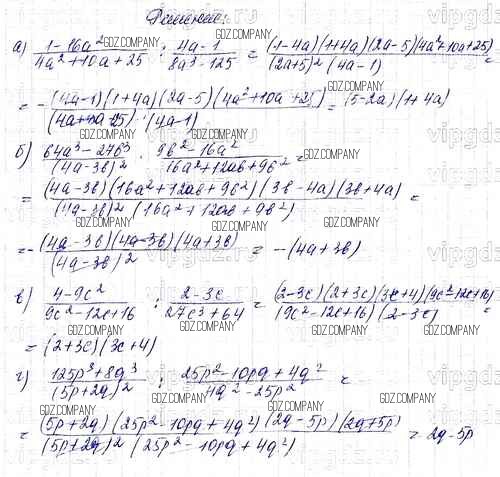 Решение:
а) (1-16a²)/(4a²+10a+25) : (4a-1)/(8a³-125) = (1-4a)(1+4a)(2a-5)(4a²+10a+25)/(2a+5)²(4a-1) =
= -(4a-1)(1+4a)(2a-5)(4a²+10a+25)/(4a+10a+25)·(4a-1) = (5-2a)(1+4a)
б) (64a³-27b³)/(4a-3b)² · (9b²-16a²)/(16a²+12ab+9b²) =
= (4a-3b)(16a²+12ab+9b²)(3b-4a)(3b+4a)/(4a-3b)²(16a²+12ab+9b²) =
= -(4a-3b)(4a-3b)(4a+3b)/(4a-3b)² = -(4a+3b)
в) (4-9c²)/(9c²-12c+16) : (2-3c)/(27c³+64) = (2-3c)(2+3c)(3c+4)(9c²-12c+16)/(9c²-12c+16)(2-3c) =
= (2+3c)(3c+4)
г) (125p³+8q³)/(5p+2q)² : (25p²-10pq+4q²)/(4q²-25p²) =
= (5p+2q)(25p²-10pq+4q²)(2q-5p)(2q+5p)/(5p+2q)²(25p²-10pq+4q²) = 2q-5p
GDZ.COMPANY
vipgdz